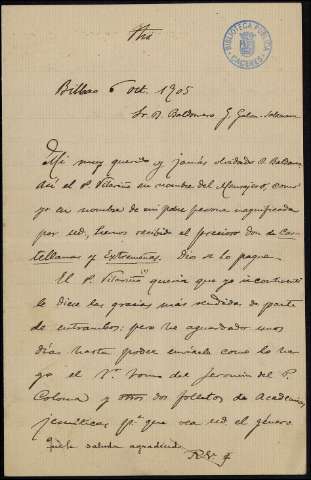 BIBLIOTECA PUBLICA
CACERES
Bilbao 6 oct. 1905
Sr. D. Baldomero G. Galán-
Mi muy querido y jamás olvidado D. Baldomero
Así el P. Vilariño en nombre del Mensajero, como
yo en nombre de mi pobre persona magnificada
por ud, hemos recibido el precioso don de Cas-
tellanas y Extremeñas. Dios se lo pague.
El P. Vilariño quería que yo incontinenti
le diese las gracias más rendidas de parte
de entrambos: pero he aguardado unos
días hasta poder enviarle como lo ha-
go el 1er tomo del Jeromín del P.
Coloma y otros dos folletos de Academias
jesuíticas pª que vea ud el género
que le saluda agradecido